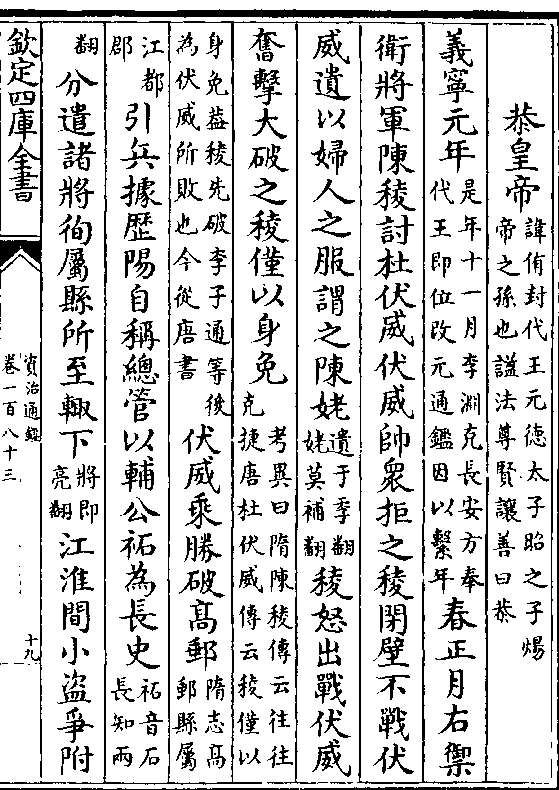 恭皇帝諱侑封代王元德太子昭之子煬
帝之孫也謚法尊賢讓善曰恭
義寧元年是年十一月李淵克長安方奉
代王即位改元通鑑因以繫年春正月右禦
衛將軍陳稜討杜伏威伏威帥衆拒之稜閉壁不戰伏
威遺以婦人之服謂之陳姥遺于季翻
姥莫補翻稜怒出戰伏威
奮擊大破之稜僅以身免考異曰隋陳稜傳云往往
克捷唐杜伏威傳云稜僅以
身免葢稜先破李子通等後
為伏威所敗也今從唐書伏威乘勝破高郵隋志高
郵縣屬
江都
郡引兵據歷陽自稱總管以輔公祏為長史祏音石
長知兩
翻分遣諸將徇屬縣所至輙下將即
亮翻江淮間小盜爭附
欽定四庫全書
資治通鑑
卷一百八十三
十九